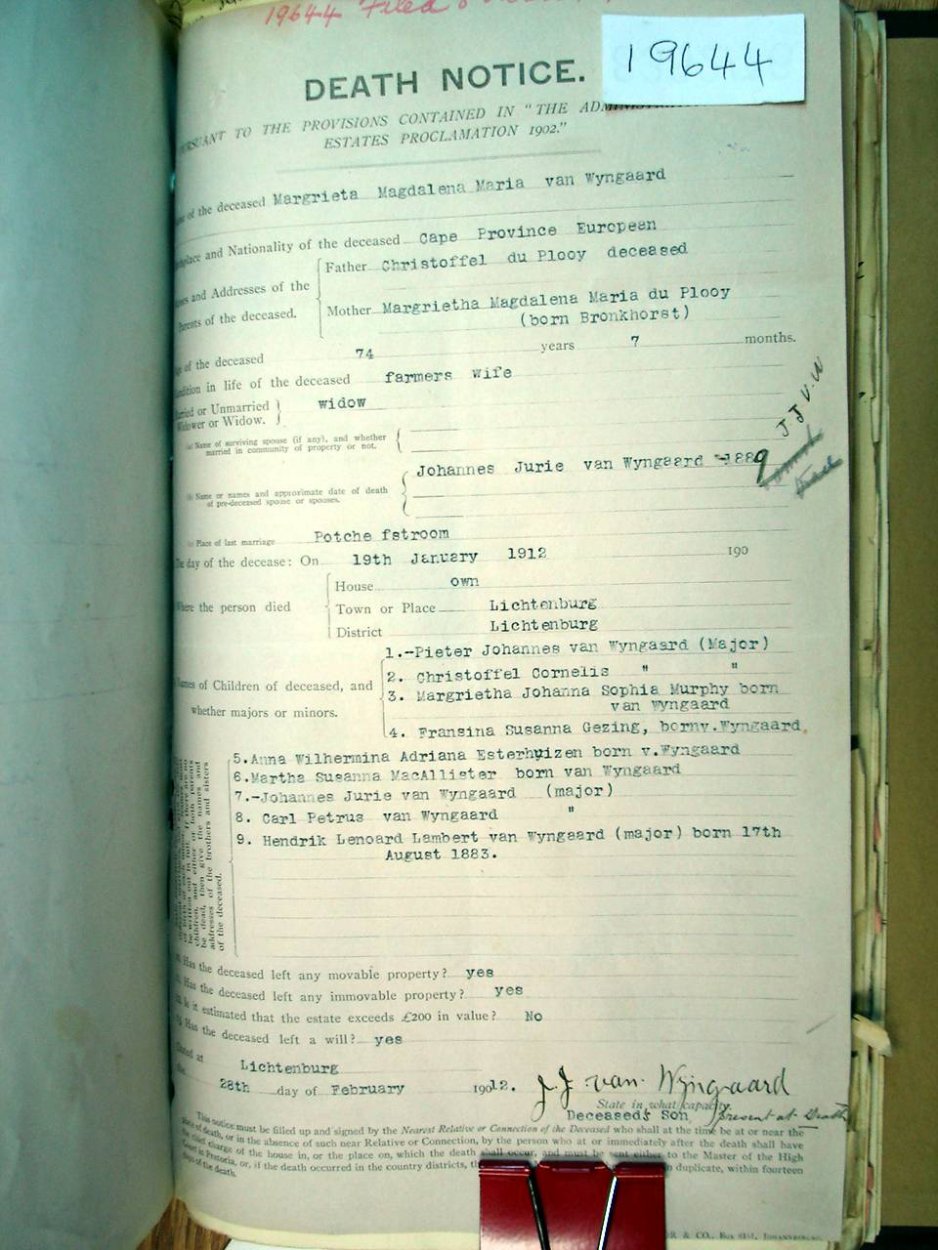 19644 Filed
19644
DEATH NOTICE.
TO THE PROVISIONS CONTAINED IN "THE
ESTATES PROCLAMATION 1902."
of the deceased Margrieta Magdalena Maria van Wyngaard
and Nationality of the deceased Cape Province European
Father Christoffel du Plooy deceased
and Addresses of the
Parents of the deceased.
Mother Margrietha Magdalena Maria du Plooy
(born Bronkhorst)
of the deceased 74 years 7 months.
in life of the deceased farmers wife
or Unmarried
or Widow. widow
J J v. W
Name of surviving spouse (if any), and whether
married in community of property or not.
Johannes Jurie van Wyngaard -1889
Name or names and approximate date of death
of pre-deceased spouse or spouses.
Place of last marriage Potche fstroom
day of the decease: On 19th January 1912 190
House own
Where the person died Town or Place Lichtenburg
District Lichtenburg
1.-Pieter Johannes van Wyngaard (Major)
2. Christoffel Cornelis " "
of Children of deceased, and 3. Margrietha Johanna Sophia Murphy born
van Wyngaard
whether majors or minors.
4. Fransina Susanna Gezing, bornv.Wyngaard.
5.Anna Wilhermina Adriana Esterhuizen born v.Wyngaard
6.Martha Susanna MacAllister born van Wyngaard
7.-Johannes Jurie van Wyngaard (major)
8. Carl Petrus van Wyngaard "
9. Hendrik Lenoard Lambert van Wyngaard (major) born 17th
August 1883.
children, and either or both parents
be dead, then give the names and
addresses of the brothers and sisters
of the deceased.
Has the deceased left any movable property? yes
Has the deceased left any immovable property? yes
Is it estimated that the estate exceeds £200 in value? No
Has the deceased left a will? yes
Dated at Lichtenburg
28th day of February 1912.
J.J van Wyngaard
State in what capacity.
Deceaseds Son present at Death
This notice must be filled up and signed by the Nearest Relative or Connection of the Deceased who shall at the time be at or near the
place of death, or in the absence of such near Relative or Connection, by the person who at or immediately after the death shall have
the chief charge of the house in, or the place on, which the death shall occur, and must be sent either to the Master of the High
Court in Pretoria, or, if the death occurred in the country districts, duplicate, within fourteen
days of the death.
& CO., Box